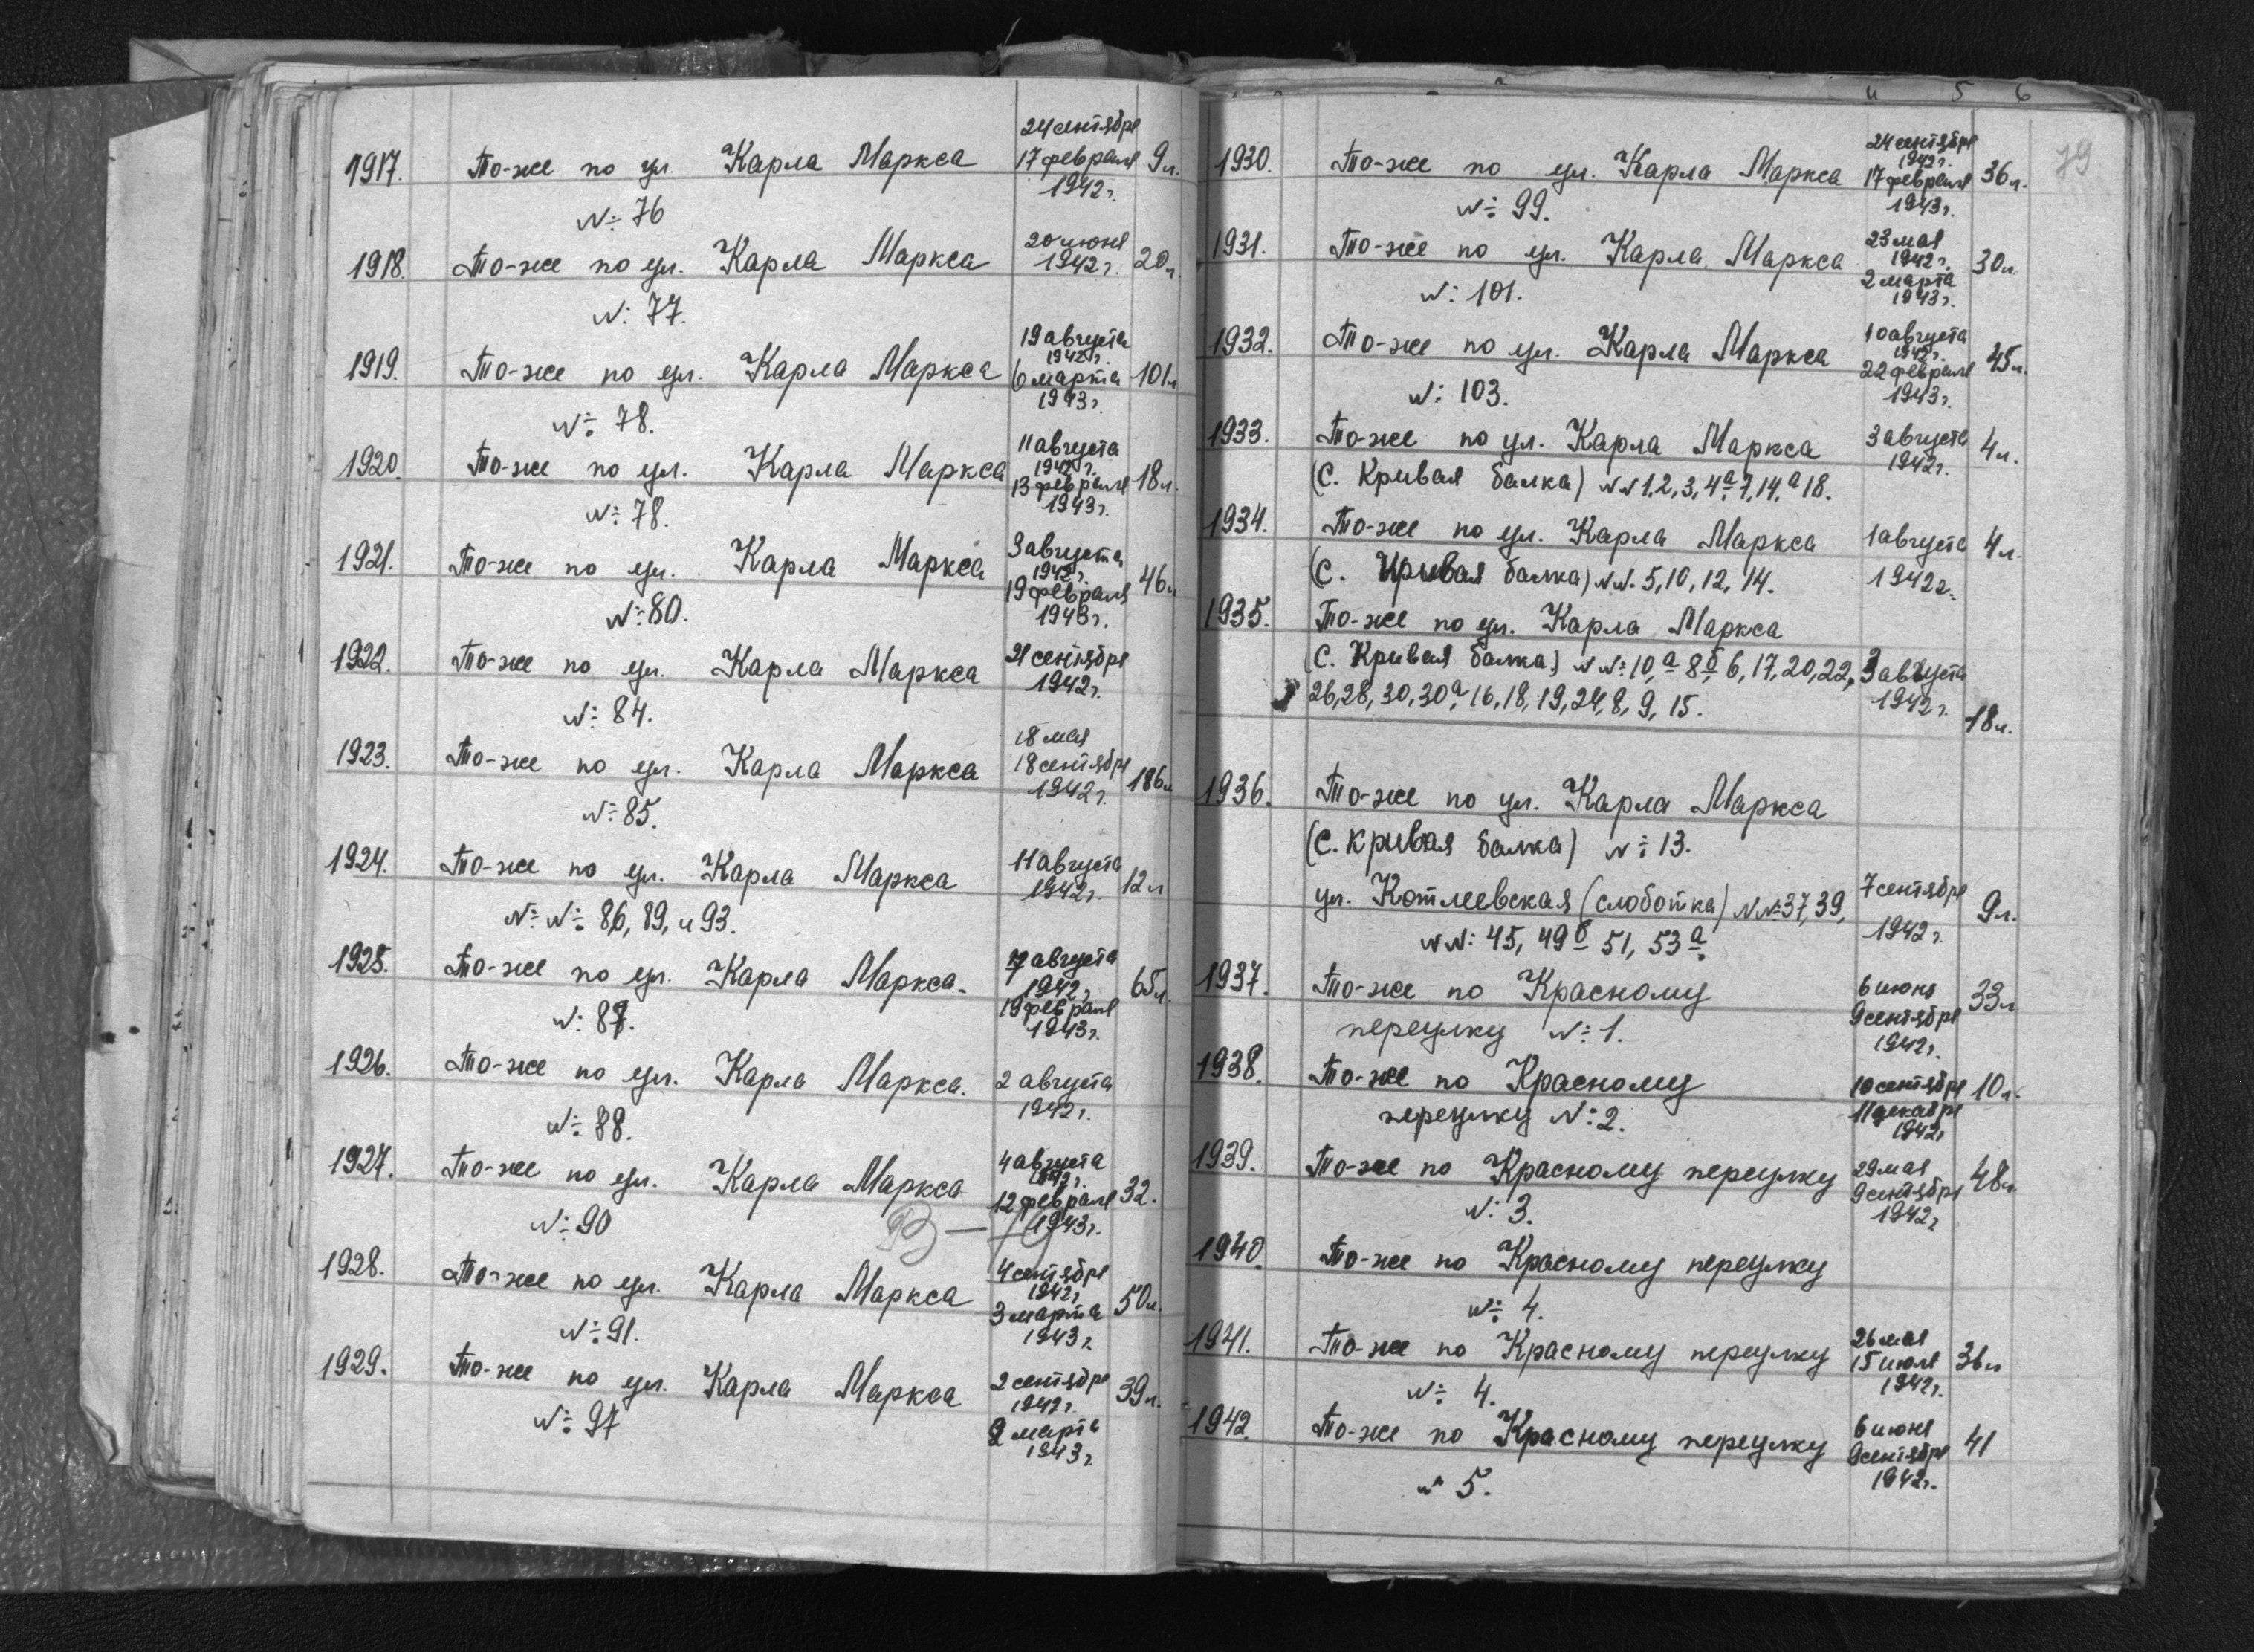 24 сентября
1917. То-же по ул. Карла Маркса 17 февраля 9 л.
1942 г.
№ 76
1918. То-же по ул. Карла Маркса 20 июня 20 л.
1942 г.
№ 77.
1919. То-же по ул. Карла Маркса 19 августа 101 л
1942 г.
6 марта
1943 г.
№ 78.
1920 То-же по ул. Карла Маркса 11 августа 18 л.
1942 г.
13 февраля
1943 г.
№ 78.
1921. То-же по ул. Карла Маркса 3 августа 46 л
1942 г.
19 февраля
1943 г.
№ 80.
1922. То-же по ул. Карла Маркса 21 сентября
1942 г.
№ 84.
1923. То-же по ул. Карла Маркса 18 мая 186 л
18 сентября
1942 г.
№ 85.
1924. То-же по ул. Карла Маркса 11 августа 12 л
1942 г.
№ № 86, 89, и 93.
1925. То-же по ул. Карла Маркса. 7 августа 65 л.
1942 г.
19 февраля
1943 г.
№ 87.
1926. То-же по ул. Карла Маркса. 2 августа
1942 г.
№ 88.
1927. То-же по ул. Карла Маркса 4 августа 32.
1942 г.
12 февраля
1943 г.
№ 90
1928. То-же по ул. Карла Маркса 4 сентября 50 л.
1942 г
3 марта
1943 г.
№ 91.
1929. То-же по ул. Карла Маркса 2 сентября 39 л.
1942 г.
2 марта
1943 г
№ 97
и 5 6
79
1930. То-же по ул. Карла Маркса 24 сентября 36 л.
1942 г.
17 февраля
1943 г.
№ 99.
1931. То-же по ул. Карла Маркса 23 мая 30 л
1942 г.
2 марта
1943 г.
№ 101.
1932. То-же по ул. Карла Маркса 10 августа 45 л.
1942 г.
22 февраля
1943 г.
№ 103.
1933. То-же по ул. Карла Маркса 3 августа 4 л.
1942 г.
(С. Кривая балка) №№ 1, 2, 3, 4а, 7, 14,а 18.
1934. То-же по ул. Карла Маркса 1 августа 4 л.
(С. Кривая балка) №№ 5, 10, 12, 14. 1942 г.
1935. То-же по ул. Карла Маркса
(С. Кривая балка) №№ 10,а 8б, 6, 17, 20, 22, 3 августа
26, 28, 30, 30а, 16, 18, 19, 24, 8, 9, 15. 1942 г. 18 л.
1936. То-же по ул. Карла Маркса
(с. кривая балка) № 13.
ул. Котлеевская (слоботка) №№ 37, 39, 7 сентября 9 л.
№№ 45, 49б 51, 53а. 1942 г.
1937. То-же по Красному 6 июня 33 л
9 сентября
переулку № 1. 1942 г.
1938. То-же по Красному 10 сентября 10 л.
переулку № 2. 11 декабря
1942 г
1939. То-же по Красному переулку 29 мая 48 л
9 сентября
№ 3. 1942 г
1940. То-же по Красному переулку
№ 4.
1941. То-же по Красному переулку 26 мая 36 л
15 июля
№ 4. 1942 г.
1942. То-же по Красному переулку 6 июня 41
9 сентября
№ 5. 1942 г.